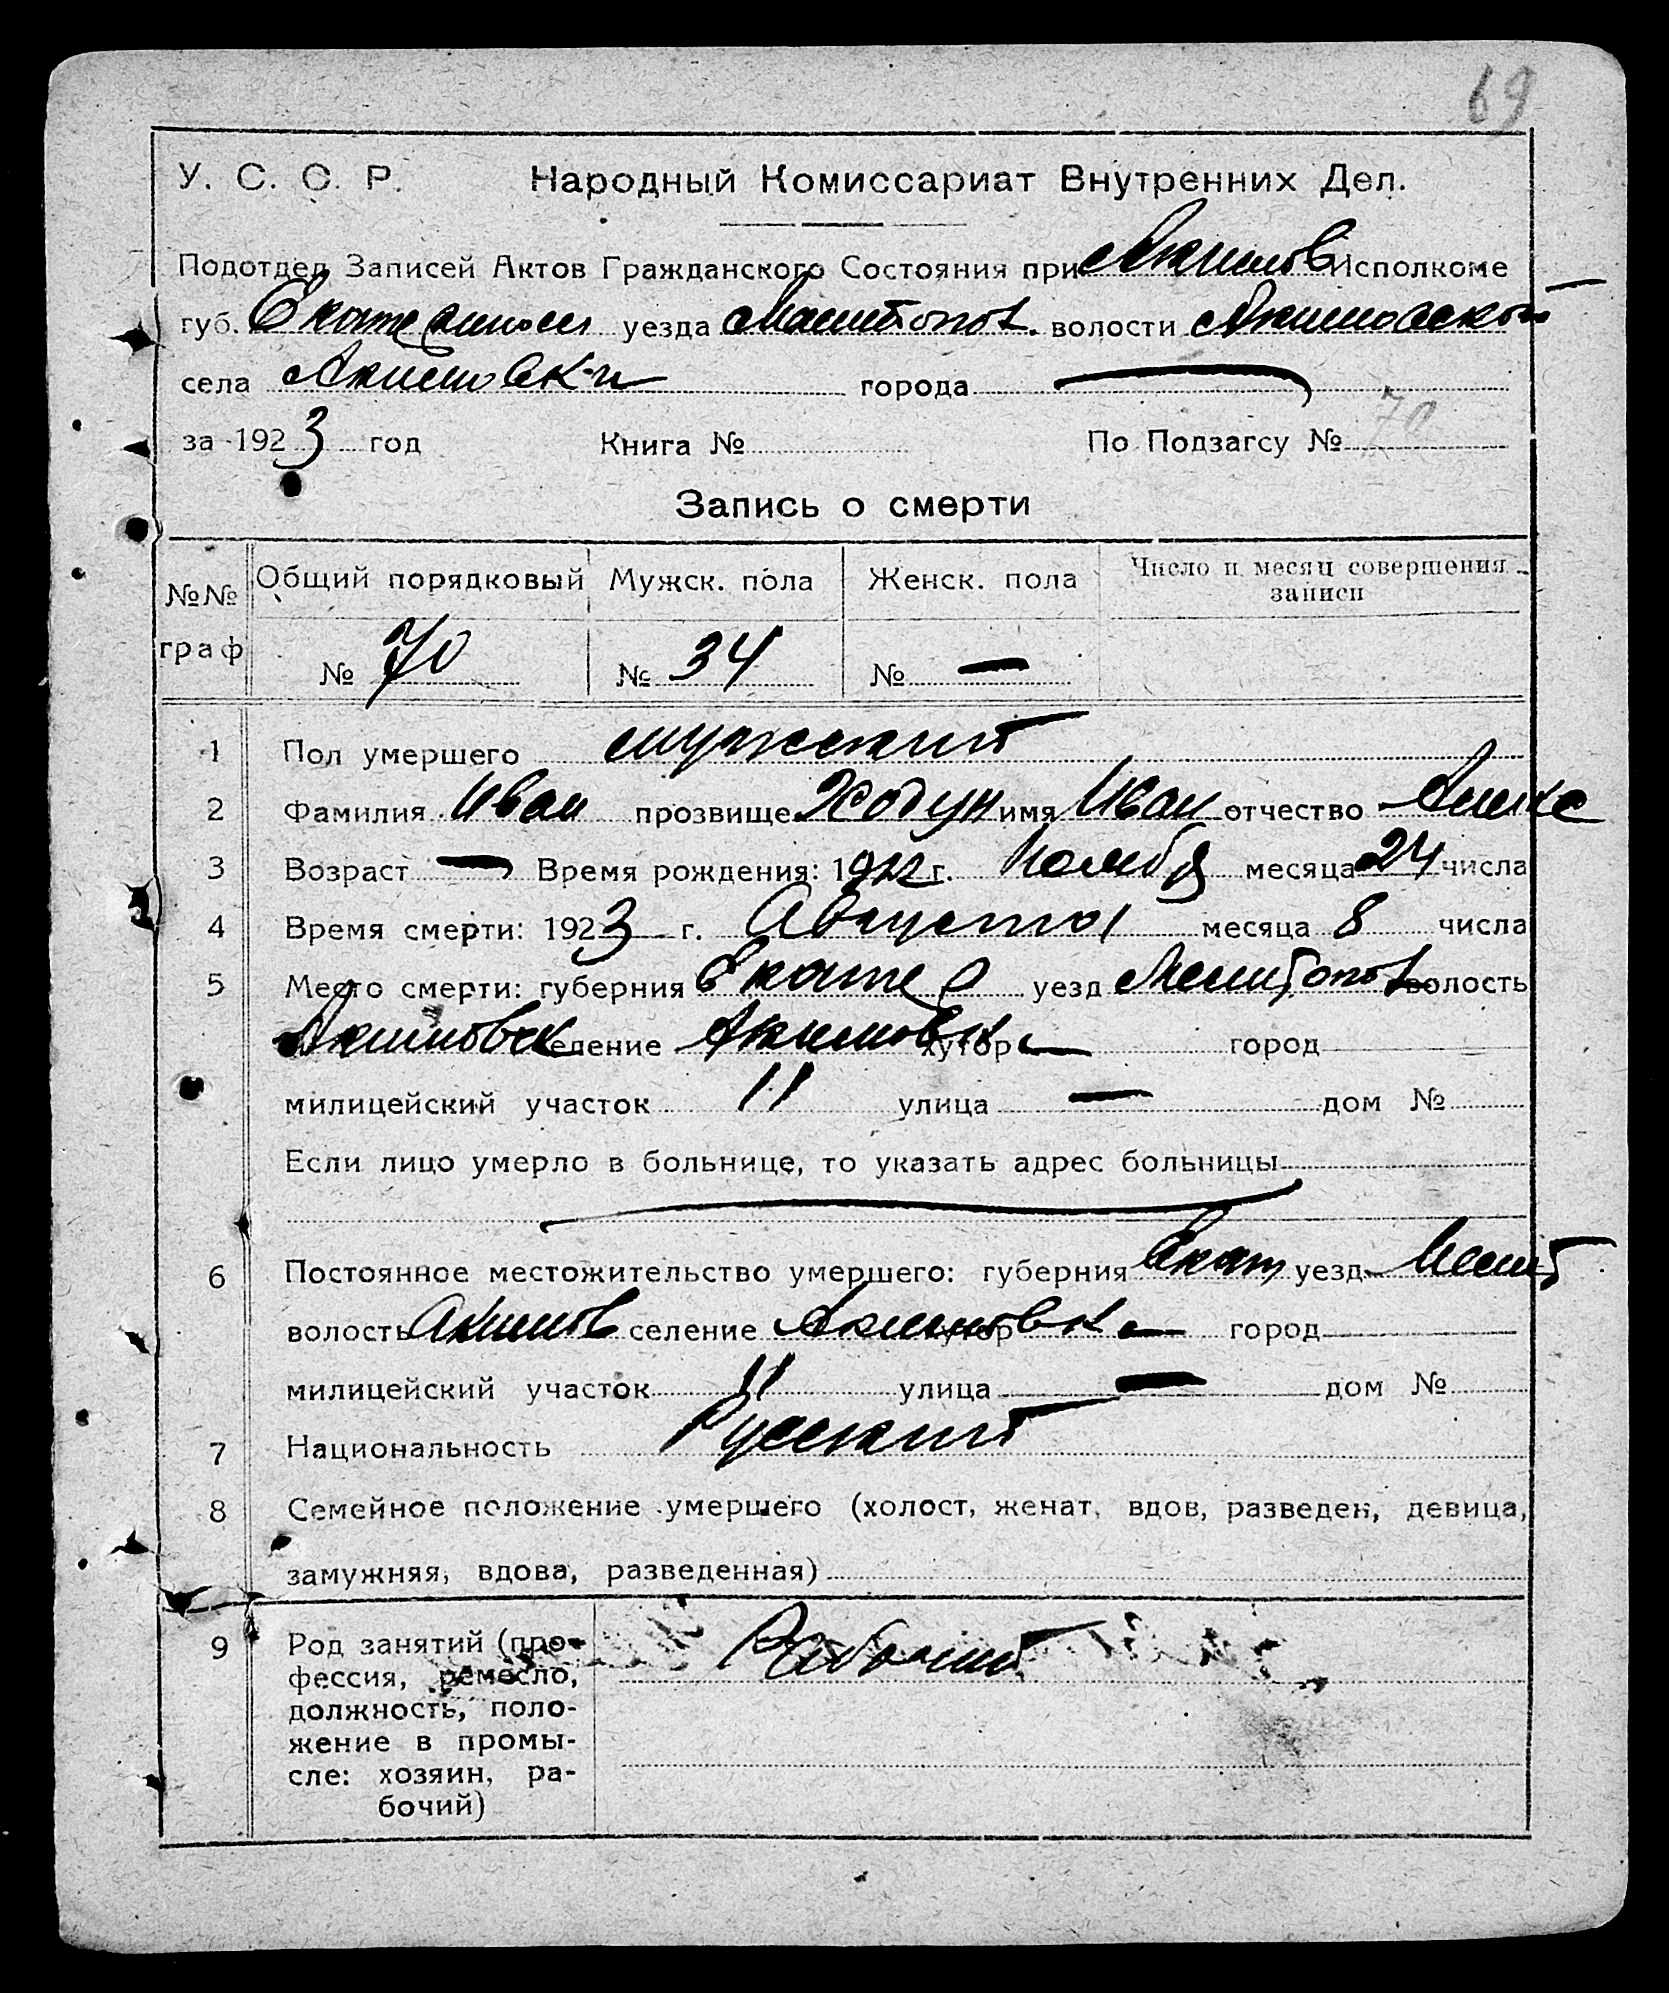 69
У. С. С. Р. Народный Комиссариат Внутренних Дел.
Подотдел Записей Актов Гражданского Состояния при Акимов Исполкоме
губ. уезда Мелитопол. волости Акимовской
села Акимовки города
за 1923 год Книга № По Подзагсу № 70
Запись о смерти
№№ граф Общий порядковый Мужск. пола Женск. пола Число и месяц совершения записи
№ 70 № 34 № —
1 Пол умершего мужский
2 Фамилия Иван прозвище Ходун имя Иван отчество Алекс
3 Возраст — Время рождения: 1922 г. Ноября месяца 24 числа
4 Время смерти: 1923 г. Августа месяца 8 числа
5 Место смерти: губерния Екатер уезд Мелитопол волость
Акимовск селение Акимовк хутор — город
милицейский участок 11 улица — дом №
Если лицо умерло в больнице, то указать адрес больницы
6 Постоянное местожительство умершего: губерния Екат уезд Мелит
волость Акимов селение Акимовк хутор — город
милицейский участок 11 улица — дом №
7 Национальность Русский
8 Семейное положение умершего (холост, женат, вдов, разведен, девица,
замужняя, вдова, разведенная)
9 Род занятий (про- Рабочий
фессия, ремесло,
должность, поло-
жение в промы-
сле: хозяин, ра-
бочий)